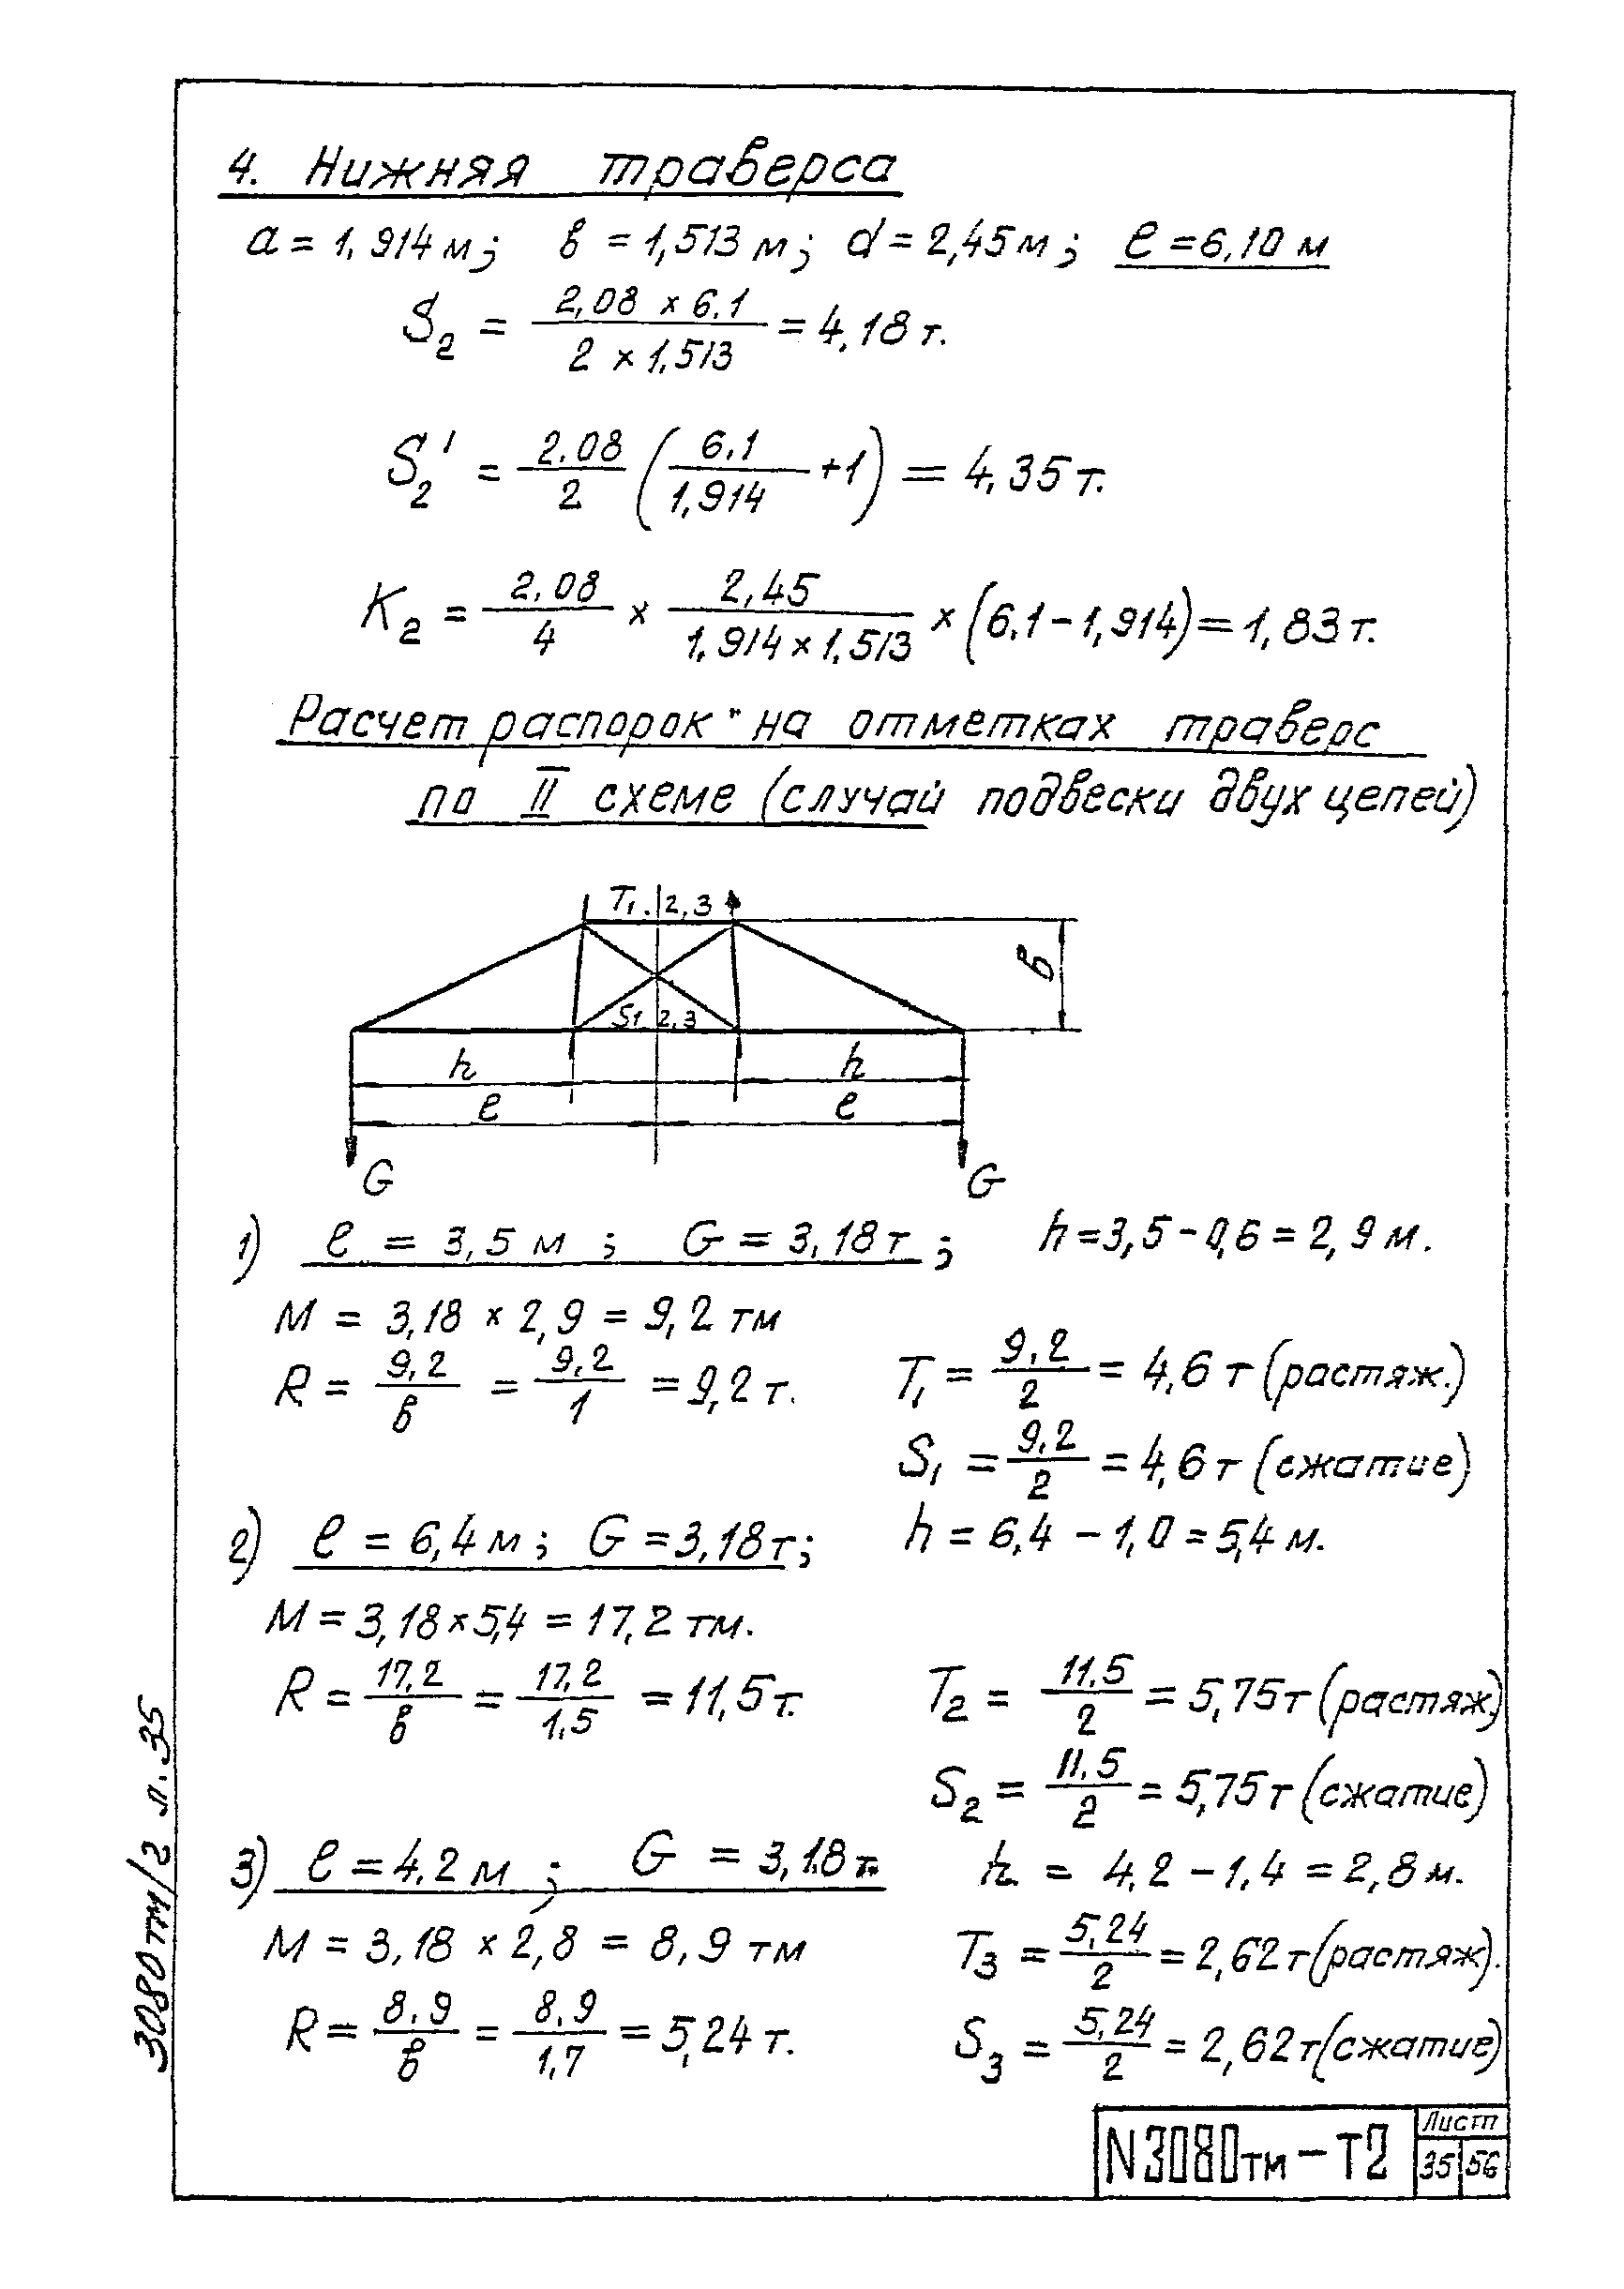 4. Нижняя траверса
a = 1,914 м; в = 1,513 м; d = 2,45 м; ℓ = 6,10 м
S₂ = (2,08 × 6,1) / (2 × 1,513) = 4,18 т.
S₂' = 2,08 / 2 (6,1 / 1,914 + 1) = 4,35 т.
K₂ = 2,08 / 4 × 2,45 / (1,914 × 1,513) × (6,1 - 1,914) = 1,83 т.
Расчет распорок на отметках траверс
по II схеме (случай подвески двух цепей)
T1. 2,3
в
S1 2,3
h h
ℓ ℓ
G G
1) ℓ = 3,5 м; G = 3,18 т; h = 3,5 - 0,6 = 2,9 м.
M = 3,18 × 2,9 = 9,2 тм
R = 9,2 / в = 9,2 / 1 = 9,2 т. T₁ = 9,2 / 2 = 4,6 т (растяж.)
S₁ = 9,2 / 2 = 4,6 т (сжатие)
2) ℓ = 6,4 м; G = 3,18 т; h = 6,4 - 1,0 = 5,4 м.
M = 3,18 × 5,4 = 17,2 тм.
R = 17,2 / в = 17,2 / 1,5 = 11,5 т. T₂ = 11,5 / 2 = 5,75 т (растяж.)
S₂ = 11,5 / 2 = 5,75 т (сжатие)
3) ℓ = 4,2 м; G = 3,18 т. h = 4,2 - 1,4 = 2,8 м.
M = 3,18 × 2,8 = 8,9 тм T₃ = 5,24 / 2 = 2,62 т (растяж).
R = 8,9 / в = 8,9 / 1,7 = 5,24 т. S₃ = 5,24 / 2 = 2,62 т (сжатие)
3080тм/2 л. 35
N3080тм-Т2
Лист
35 56